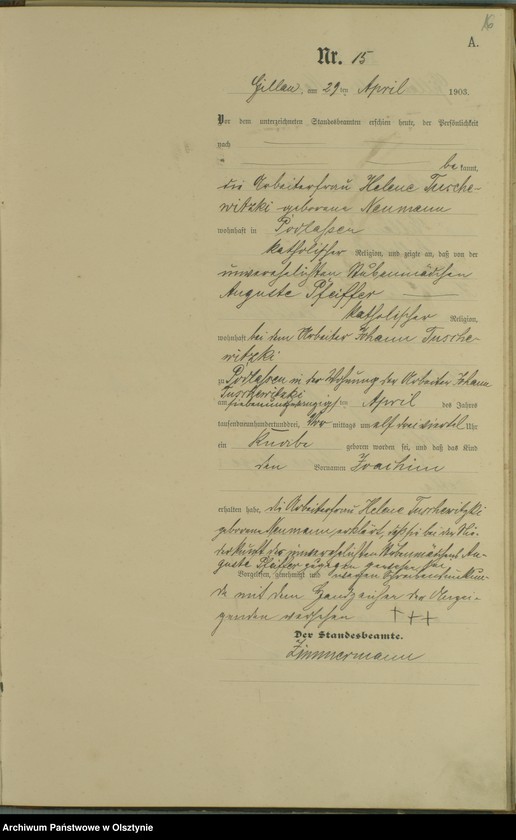 16
A.
Nr. 15
Gillau, am 29ten April 1903.
Vor dem unterzeichneten Standesbeamten erschien heute, der Persönlichkeit
nach
be kannt,
die Arbeiterfrau Helene Tusche-
witzki geborene Neumann
wohnhaft in Podlassen
katholischer Religion, und zeigte an, daß von der
unverehelichten Stubenmädchen
Auguste Pfeiffer
katholischer Religion,
wohnhaft bei dem Arbeiter Johann Tusche-
witzki
zu Podlassen in der Wohnung des Arbeiter Johann
Tuschewitzki
am siebenundzwanzigsten April des Jahres
tausendneunhundertdrei, Vor mittags um elf dreiviertel Uhr
ein Knabe geboren worden sei, und daß das Kind
den Vornamen Joachim
erhalten habe, die Arbeiterfrau Helene Tuschewitzki
geborene Neumann, erklärt, daß sie bei der Nie-
derkunft der unverehelichten Stubenmädchens Au-
guste Pfeiffer zugegen gewesen sei.
Vorgelesen, genehmigt und wegen Schreibensunkun-
de mit dem Handzeichen der Anzei-
genden versehen +++
Der Standesbeamte.
Zimmermann
Archiwum Państwowe w Olsztynie